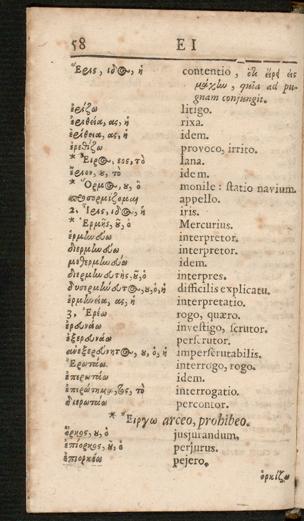 58 ΕΙ
Ἔρις, ιδος, ἡ contentio, ὅτι εἴρῃ εἰς
μάχlω, quia ad pu-
gnam conjungit.
ἐρίζω litigo.
ἐριθεία, ας, ἡ rixa.
ἐρίθεια, ας, ἡ idem.
ἐρεθίζω provoco, irrito.
* Εἶρος, εος, τὸ lana.
ἔριον, ου, τὸ idem.
* Ὅρμος, ου, ὁ monile: statio navium.
προσορμίζομαι appello.
2. Ἶρις, ιδος, ἡ iris.
* Ἑρμῆς, οῦ, ὁ Mercurius.
ἑρμlωεύω interpretor.
διερμlωεύω interpretor.
μεθερμlωεύω idem.
διερμlωευτὴς, οῦ, ὁ interpres.
δυσερμlώευτος, ου, ὁ, ἡ difficilis explicatu.
ἑρμlωεία, ας, ἡ interpretatio.
3. Ἐρέω rogo, quæro.
ἐρευνάω investigo, scrutor.
ἐξερευνάω perscrutor.
ἀνεξερεύνητος, ου, ὁ, ἡ imperscrutabilis.
Ἐρωτάω interrogo, rogo.
ἐπερωτάω idem.
ἐπερώτημα, τος, τὸ interrogatio.
διερωτάω percontor.
* Εἴργω arceo, prohibeo.
ὅρκος, ου, ὁ jusjurandum.
ἐπίορκος, ου, ὁ perjurus.
ἐπιορκέω pejero.
ὁρκίζω